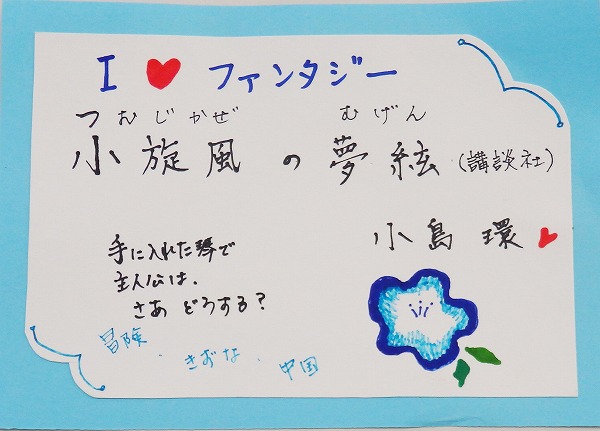 I ♥ ファンタジー
つむじかぜ むげん
小旋風の夢絃(講談社)
小島 環♥
手に入れた琴で
主人公は、
さあ どうする?
冒険・きずな・中国